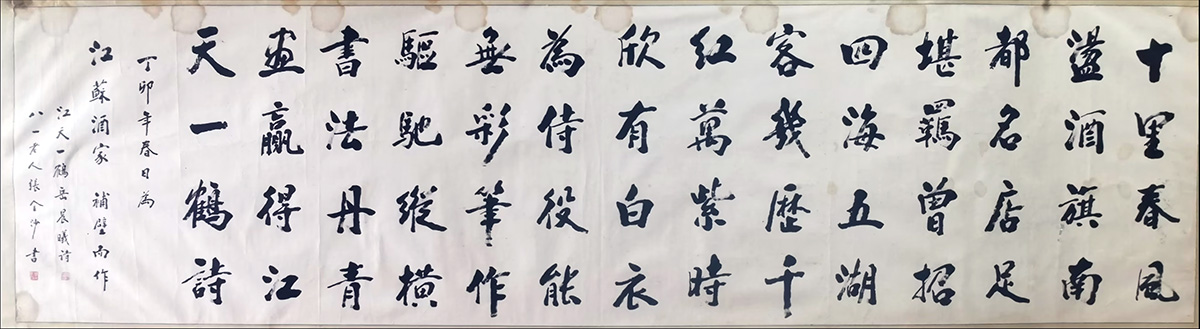 十里春風
盪酒旗南
都名店足
堪羈曾招
四海五湖
客幾歷千
紅萬紫時
欣有白衣
為侍役能
無彩筆作
驅馳縱橫
書法丹青
畫贏得江
天一鶴詩
丁卯年春日為
江蘇酒家 補壁而作
江天一鶴岳晨曦詩
八一老人張金沙書